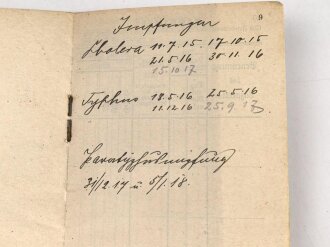 9
Impfungen
Cholera 11.7.15. 17.10.15
21.5.16 30.11.16
15.10.17
Typhus 18.5.16 25.5.16
11.12.16 25.9.17
Paratyphusimpfung
31/12.17 u. 5/1.18.